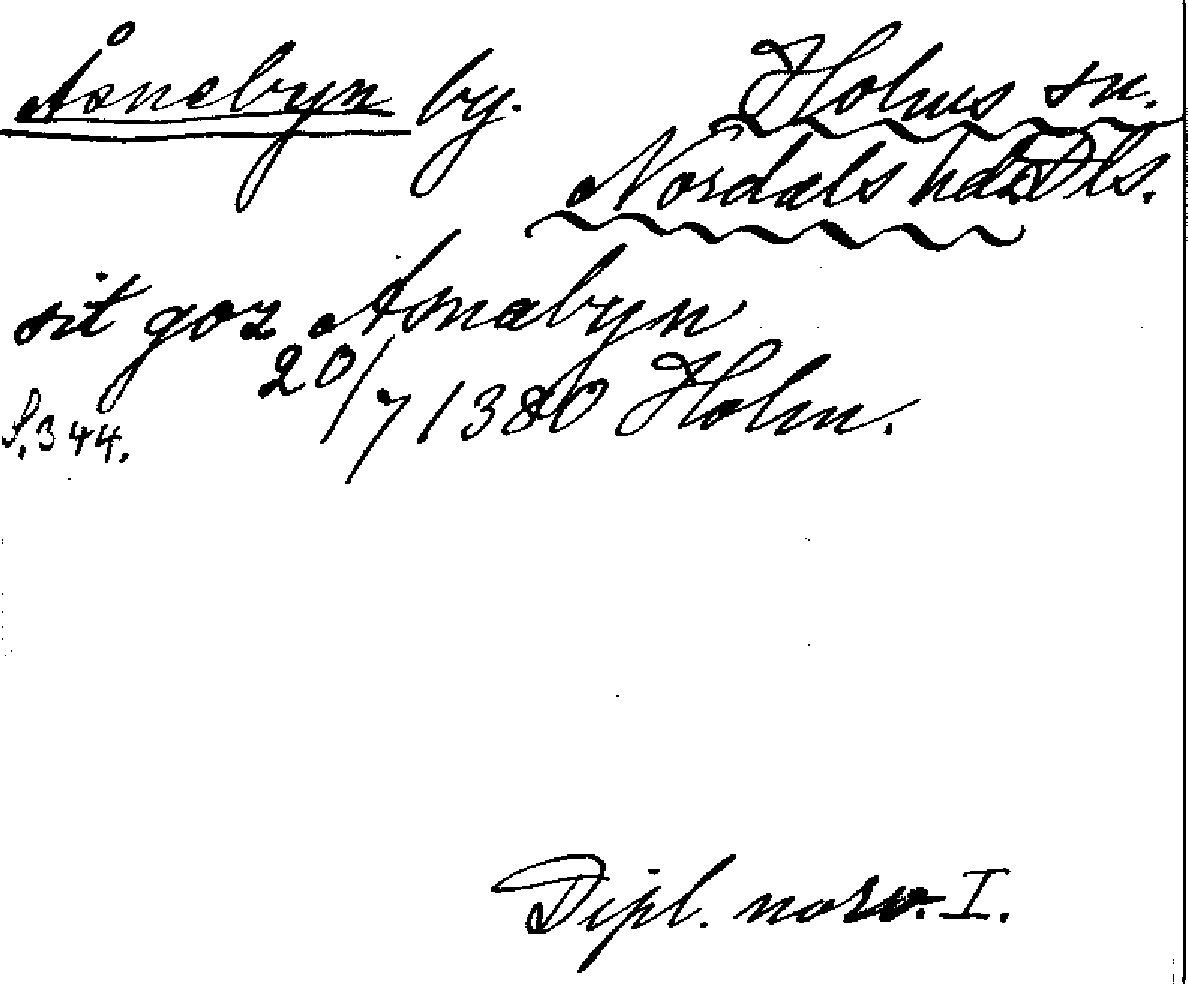 Åsnebyn by. Holms sn.
Nordals hd. Dls.
sit goz Asnabyn
20/7 1380 Holm.
S. 344.
Dipl. norv. I.